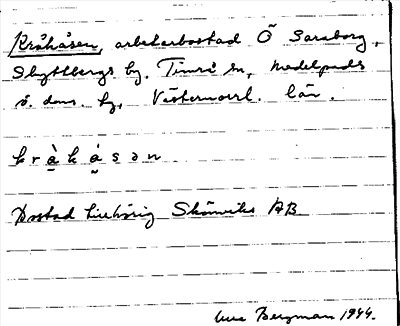 Kråkåsen, arbetarbostad Ö Saraborg,
Skyttbergs by, Timrå sn, Medelpads
ö. doms. hg, Västernorrl. län.
k r à k á s ə n
Bostad tillhörig Skönviks AB
Bergman 1944.